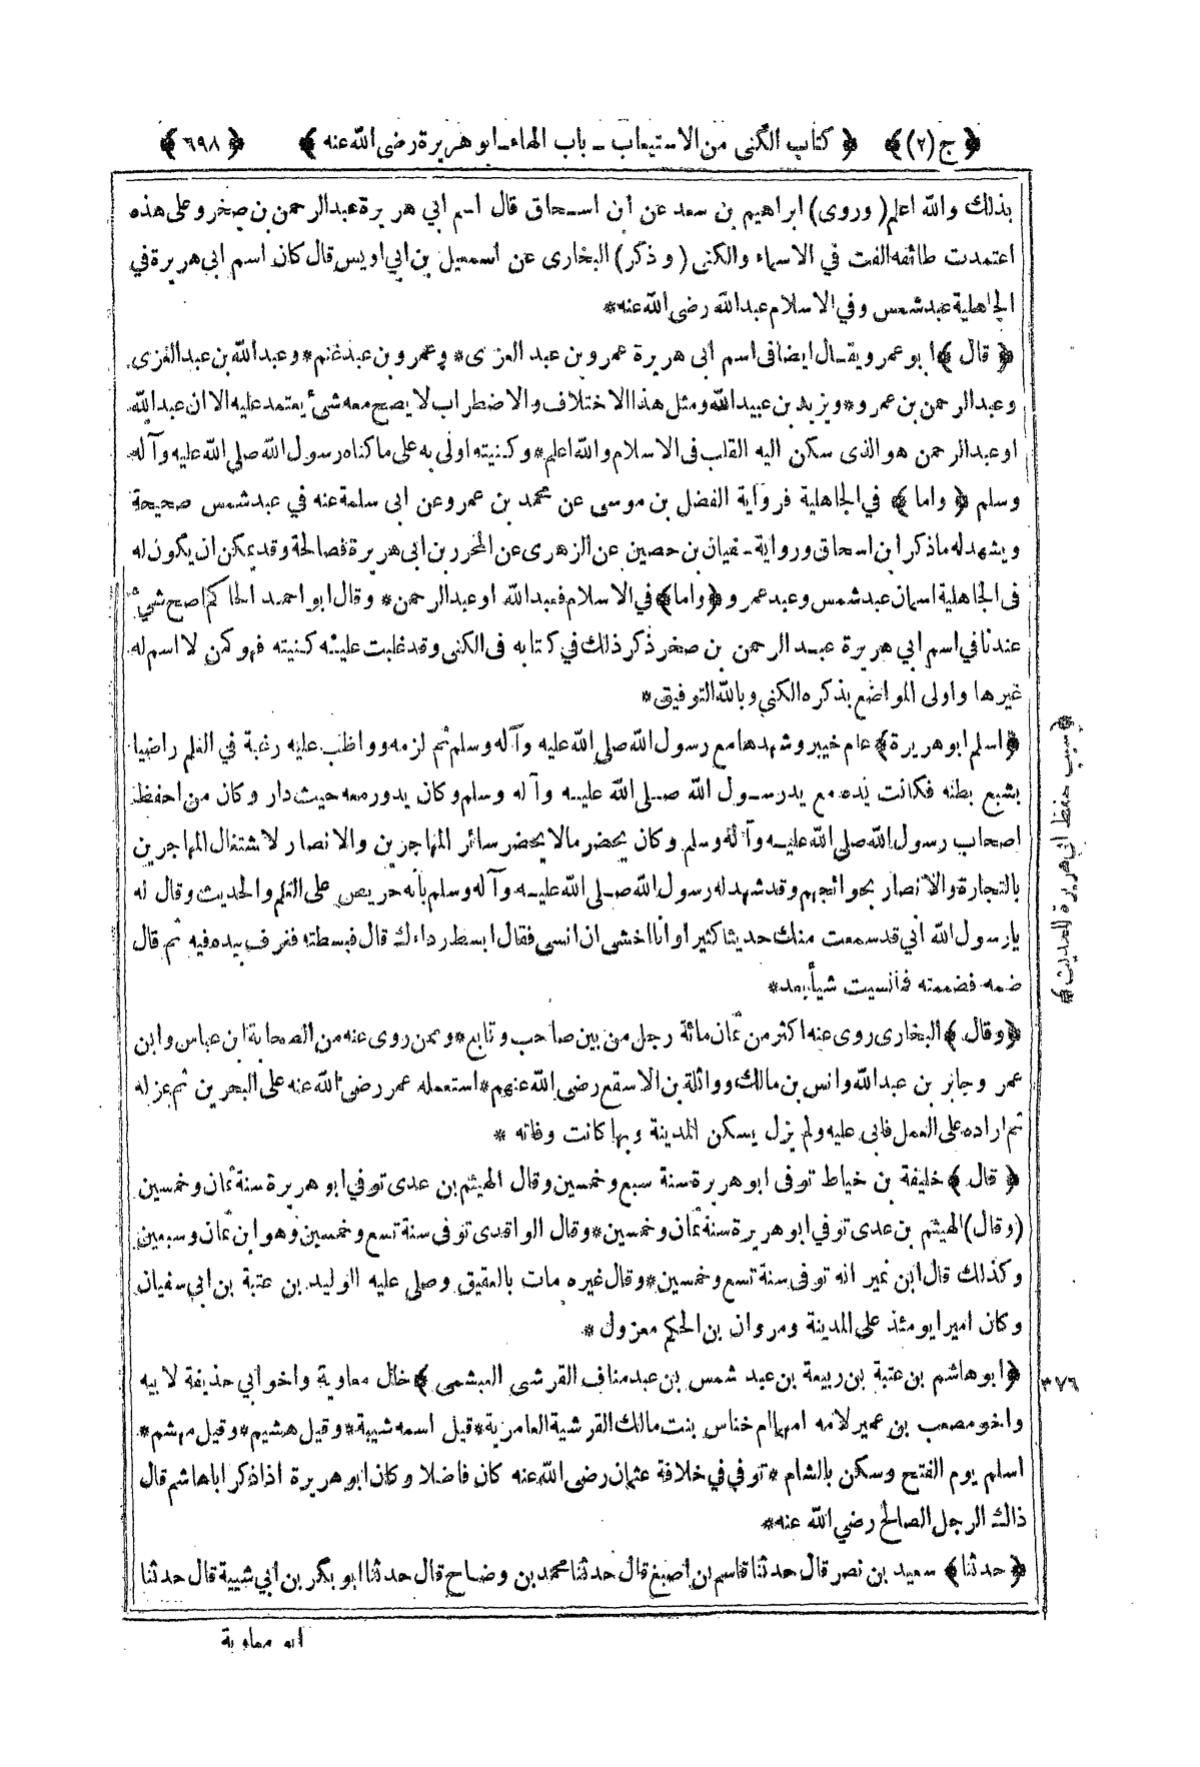 ﴿ ج (٢) ﴾ ﴿ كتاب الكنى من الاستيعاب - باب الهاء - ابو هريرة رضى الله عنه ﴾ ﴿ ٦٩٨ ﴾
بذلك والله اعلم ( وروى ) ابراهيم بن سعد عن ابن اسحاق قال اسم ابي هريرة عبد الرحمن بن صخر و على هذه
اعتمدت طائفه الفت في الاسماء والكنى ( و ذكر ) البخارى عن اسمعيل بن ابي اويس قال كان اسم ابي هريرة في
الجاهلية عبد شمس وفي الاسلام عبد الله رضي الله عنه *
﴿ قال ﴾ ابو عمر و يقال ايضا فى اسم ابى هريرة عمرو بن عبد العزى * وعمرو بن عبد غنم * وعبد الله بن عبد العزى
وعبد الرحمن بن عمرو * ويزيد بن عبيد الله ومثل هذا الاختلاف والاضطراب لا يصح معه شئ يعتمد عليه الا ان عبد الله
او عبد الرحمن هو الذى سكن اليه القلب فى الاسلام والله اعلم * وكنيته اولى به على ما كناه رسول الله صلى الله عليه وآله
وسلم ﴿ واما ﴾ في الجاهلية فرواية الفضل بن موسى عن محمد بن عمرو عن ابى سلمة عنه في عبد شمس صحيحة
ويشهد له ما ذكر ابن اسحاق ورواية سفيان بن حصين عن الزهرى عن المحرر بن ابى هريرة فصالحة وقد يمكن ان يكون له
فى الجاهلية اسمان عبد شمس وعبد عمرو ﴿ واما ﴾ في الاسلام فعبد الله او عبد الرحمن * وقال ابو احمد الحاكم اصح شئ
عندنا في اسم ابي هريرة عبد الرحمن بن صخر ذكر ذلك في كتابه فى الكنى وقد غلبت عليه كنيته فهو كمن لا اسم له
غيرها واولى المواضع بذكره الكنى وبالله التوفيق *
﴿ اسلم ابو هريرة ﴾ عام خيبر وشهدها مع رسول الله صلى الله عليه وآله وسلم ثم لزمه وواظب عليه رغبة في العلم راضيا
بشبع بطنه فكانت يده مع يد رسول الله صلى الله عليه وآله وسلم وكان يدور معه حيث دار وكان من احفظ
اصحاب رسول الله صلى الله عليه وآله وسلم وكان يحضر مالا يحضر سائر المهاجرين والانصار لاشتغال المهاجرين
بالتجارة والانصار بحوائجهم وقد شهد له رسول الله صلى الله عليه وآله وسلم بأنه حريص على العلم والحديث وقال له
يا رسول الله اني قد سمعت منك حديثا كثيرا وانا اخشى ان انسى فقال ابسط رداءك قال فبسطته فغرف بيده فيه ثم قال
ضمه فضممته فما نسيت شيأ بعد *
﴿ وقال ﴾ البخارى روى عنه اكثر من ثمان مائة رجل من بين صاحب وتابع * وممن روى عنه من الصحابة ابن عباس وابن
عمر وجابر بن عبد الله وانس بن مالك وواثلة بن الاسقع رضى الله عنهم * استعمله عمر رضى الله عنه على البحرين ثم عزله
ثم اراده على العمل فابى عليه ولم يزل يسكن المدينة وبها كانت وفاته *
﴿ قال ﴾ خليفة بن خياط توفى ابو هريرة سنة سبع وخمسين وقال الهيثم بن عدى توفي ابو هريرة سنة ثمان وخمسين
( وقال ) الهيثم بن عدى توفي ابو هريرة سنة ثمان وخمسين * وقال الواقدى توفى سنة تسع وخمسين وهو ابن ثمان وسبعين
وكذلك قال ابن نمير انه توفى سنة تسع وخمسين * وقال غيره مات بالعقيق وصلى عليه الوليد بن عتبة بن ابي سفيان
وكان اميرا يومئذ على المدينة ومروان بن الحكم معزول *
﴿ ابو هاشم بن عتبة بن ربيعة بن عبد شمس بن عبد مناف القرشى العبشمى ﴾ خال معاوية واخو ابي حذيفة لابيه
واخو مصعب بن عمير لامه امهما ام خناس بنت مالك القرشية العامرية * قيل اسمه شيبة * وقيل هشيم * وقيل مهشم *
اسلم يوم الفتح وسكن بالشام * توفي في خلافة عثمان رضى الله عنه كان فاضلا وكان ابو هريرة اذا ذكر ابا هاشم قال
ذاك الرجل الصالح رضي الله عنه *
﴿ حدثنا ﴾ سعيد بن نصر قال حدثنا قاسم بن اصبغ قال حدثنا محمد بن وضاح قال حدثنا ابو بكر بن ابي شيبة قال حدثنا
ابو معاوية
﴿ سبب حفظ ابي هريرة للحديث ﴾
٣٧٦